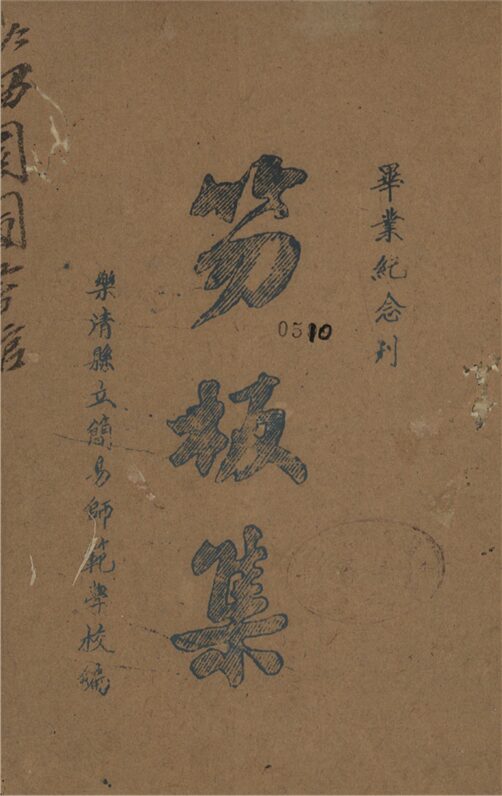 畢業紀念刊
笏板集
0510
樂清縣立簡易師範學校編